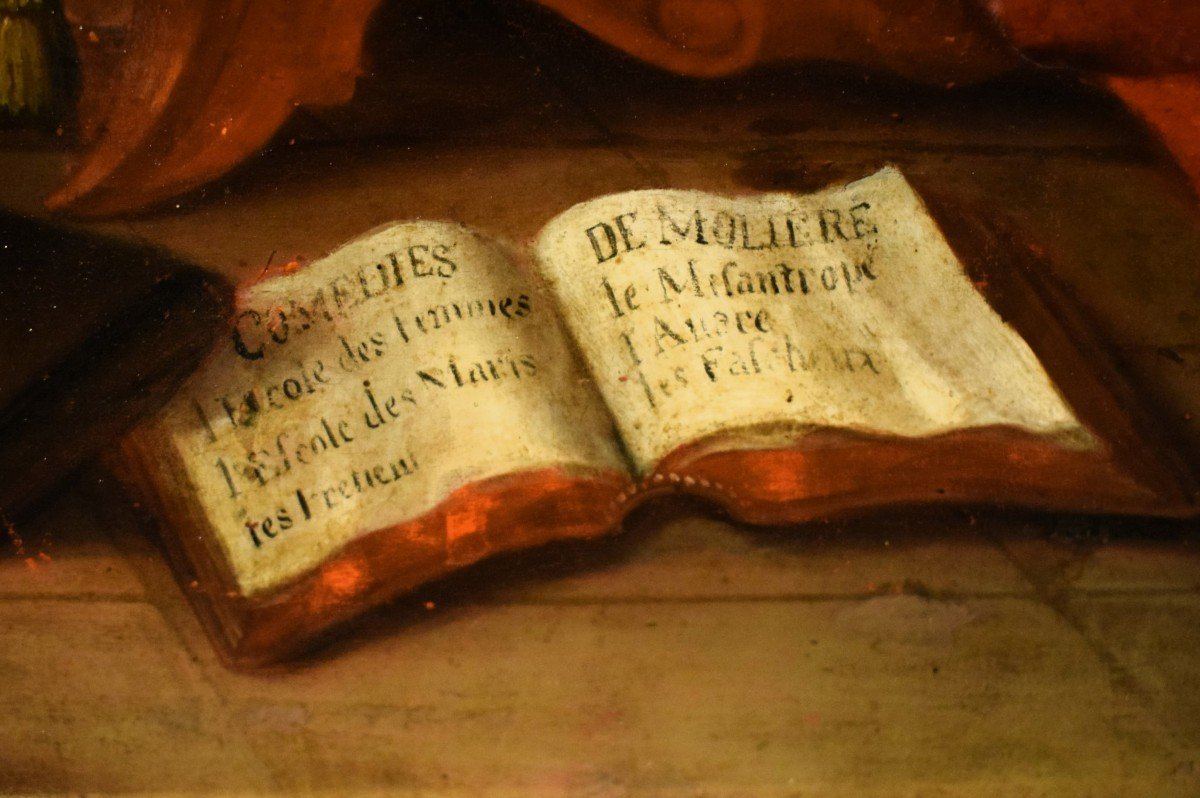 COMEDIES
l'Escole des femmes
l'Escole des Maris
DE MOLIERE
le Misantrope
l'Auare
les Fascheux